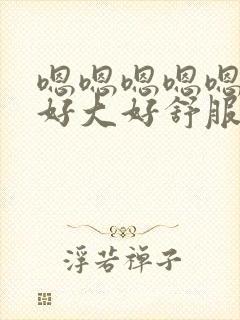 嗯嗯嗯嗯嗯
好大好舒服
浮若禅子